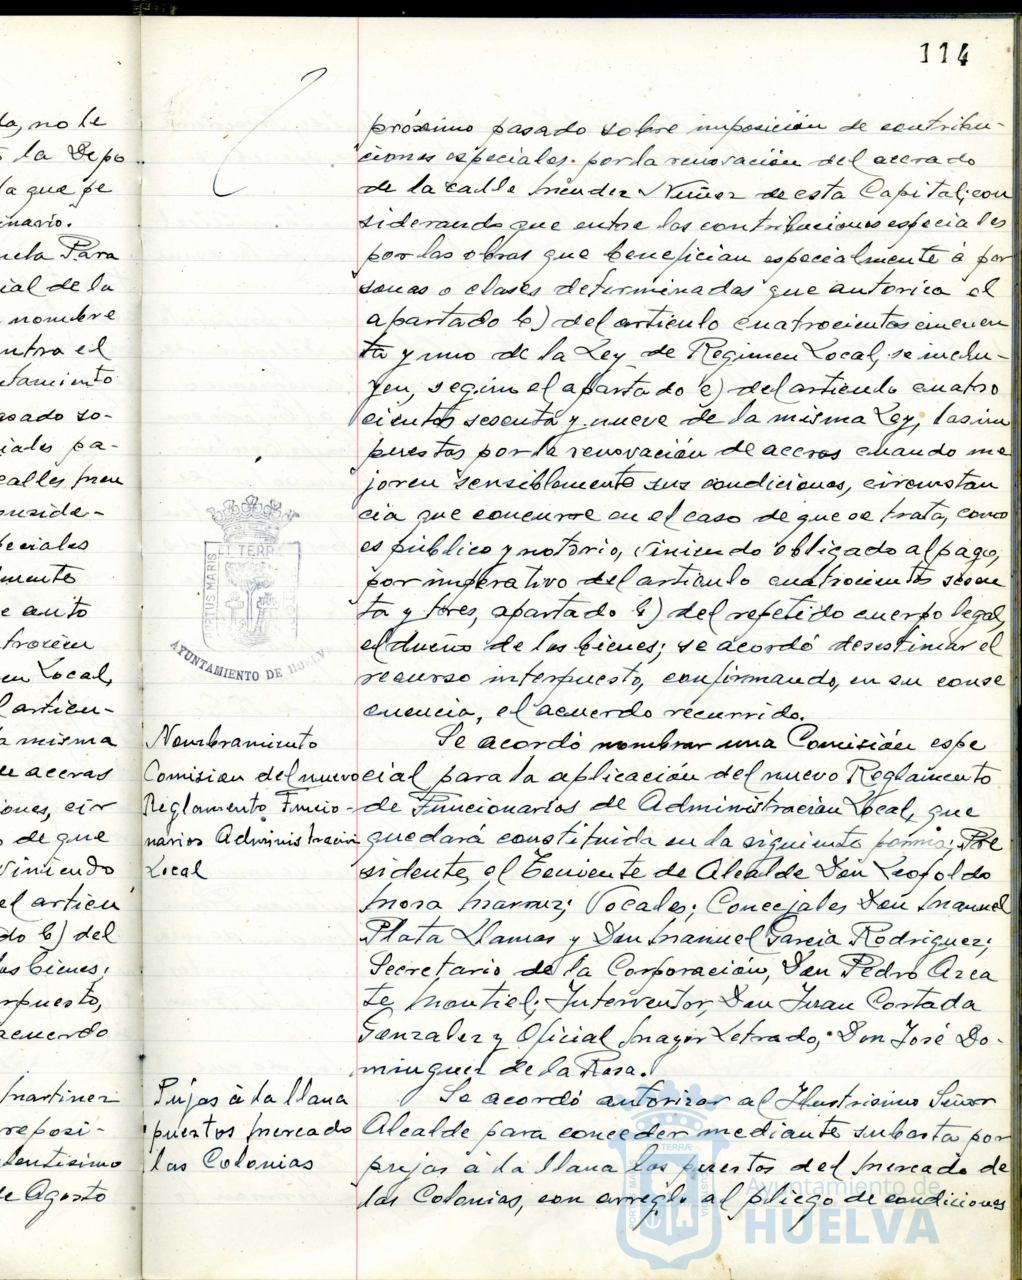 114
da, no le
s la Depo
la que se
inario.
nela Para
ial de la
nombre
ntra el
ntamiento
asado so-
iales pa-
calles Men
onside-
peciales
lmente
e auto
trocien
en Local,
l articu-
a misma
de aceras
iones, cir
o de que
viniendo
el articu
do b) del
los bienes;
rpuesto,
acuerdo
Martinez
reposi-
lentisimo
de Agosto
próximo pasado sobre imposición de contribu-
ciones especiales por la renovación del acerado
de la calle Méndez Nuñez de esta Capital; con
siderando que entre las contribuciones especiales
por las obras que benefician especialmente á per
sonas o clases determinadas que autoriza el
apartado b) del articulo cuatrocientos cincuen
ta y uno de la Ley de Regimen Local, se inclu-
yen, según el apartado c) del articulo cuatro
cientos sesenta y nueve de la misma Ley, las im
puestas por la renovación de aceras cuando me
joren sensiblemente sus condiciones, circunstan
cia que concurre en el caso de que se trata, como
es público y notorio, viniendo obligado al pago,
por imperativo del articulo cuatrocientos sesen
ta y tres, apartado b) del repetido cuerpo legal,
el dueño de los bienes; se acordó desestimar el
recurso interpuesto, confirmando, en su conse
cuencia, el acuerdo recurrido.
ET TERRÆ
PORTUS MARIS
CUSTODIA
AYUNTAMIENTO DE HUELVA
Nombramiento
Comision del nuevo
Reglamento Funcio-
narios Administracion
Local
Se acordó nombrar una Comisión espe
cial para la aplicación del nuevo Reglamento
de Funcionarios de Administración Local, que
quedará constituida en la siguiente forma: Pre
sidente, el Teniente de Alcalde Don Leopoldo
Mora Marruz; Vocales; Concejales Don Manuel
Plata Llamas y Don Manuel Garcia Rodriguez;
Secretario de la Corporación, Don Pedro Arca
te Montiel; Interventor, Don Juan Cortada
Gonzalez y Oficial Mayor Letrado, Don José Do-
minguez de la Rosa.
Pujas à la llana
puestos Mercado
las Colonias
Se acordó autorizar al Ilustrisimo Señor
Alcalde para conceder mediante subasta por
pujas à la llana los puestos del Mercado de
las Colonias, con arreglo al pliego de condiciones
Ayuntamiento de
HUELVA